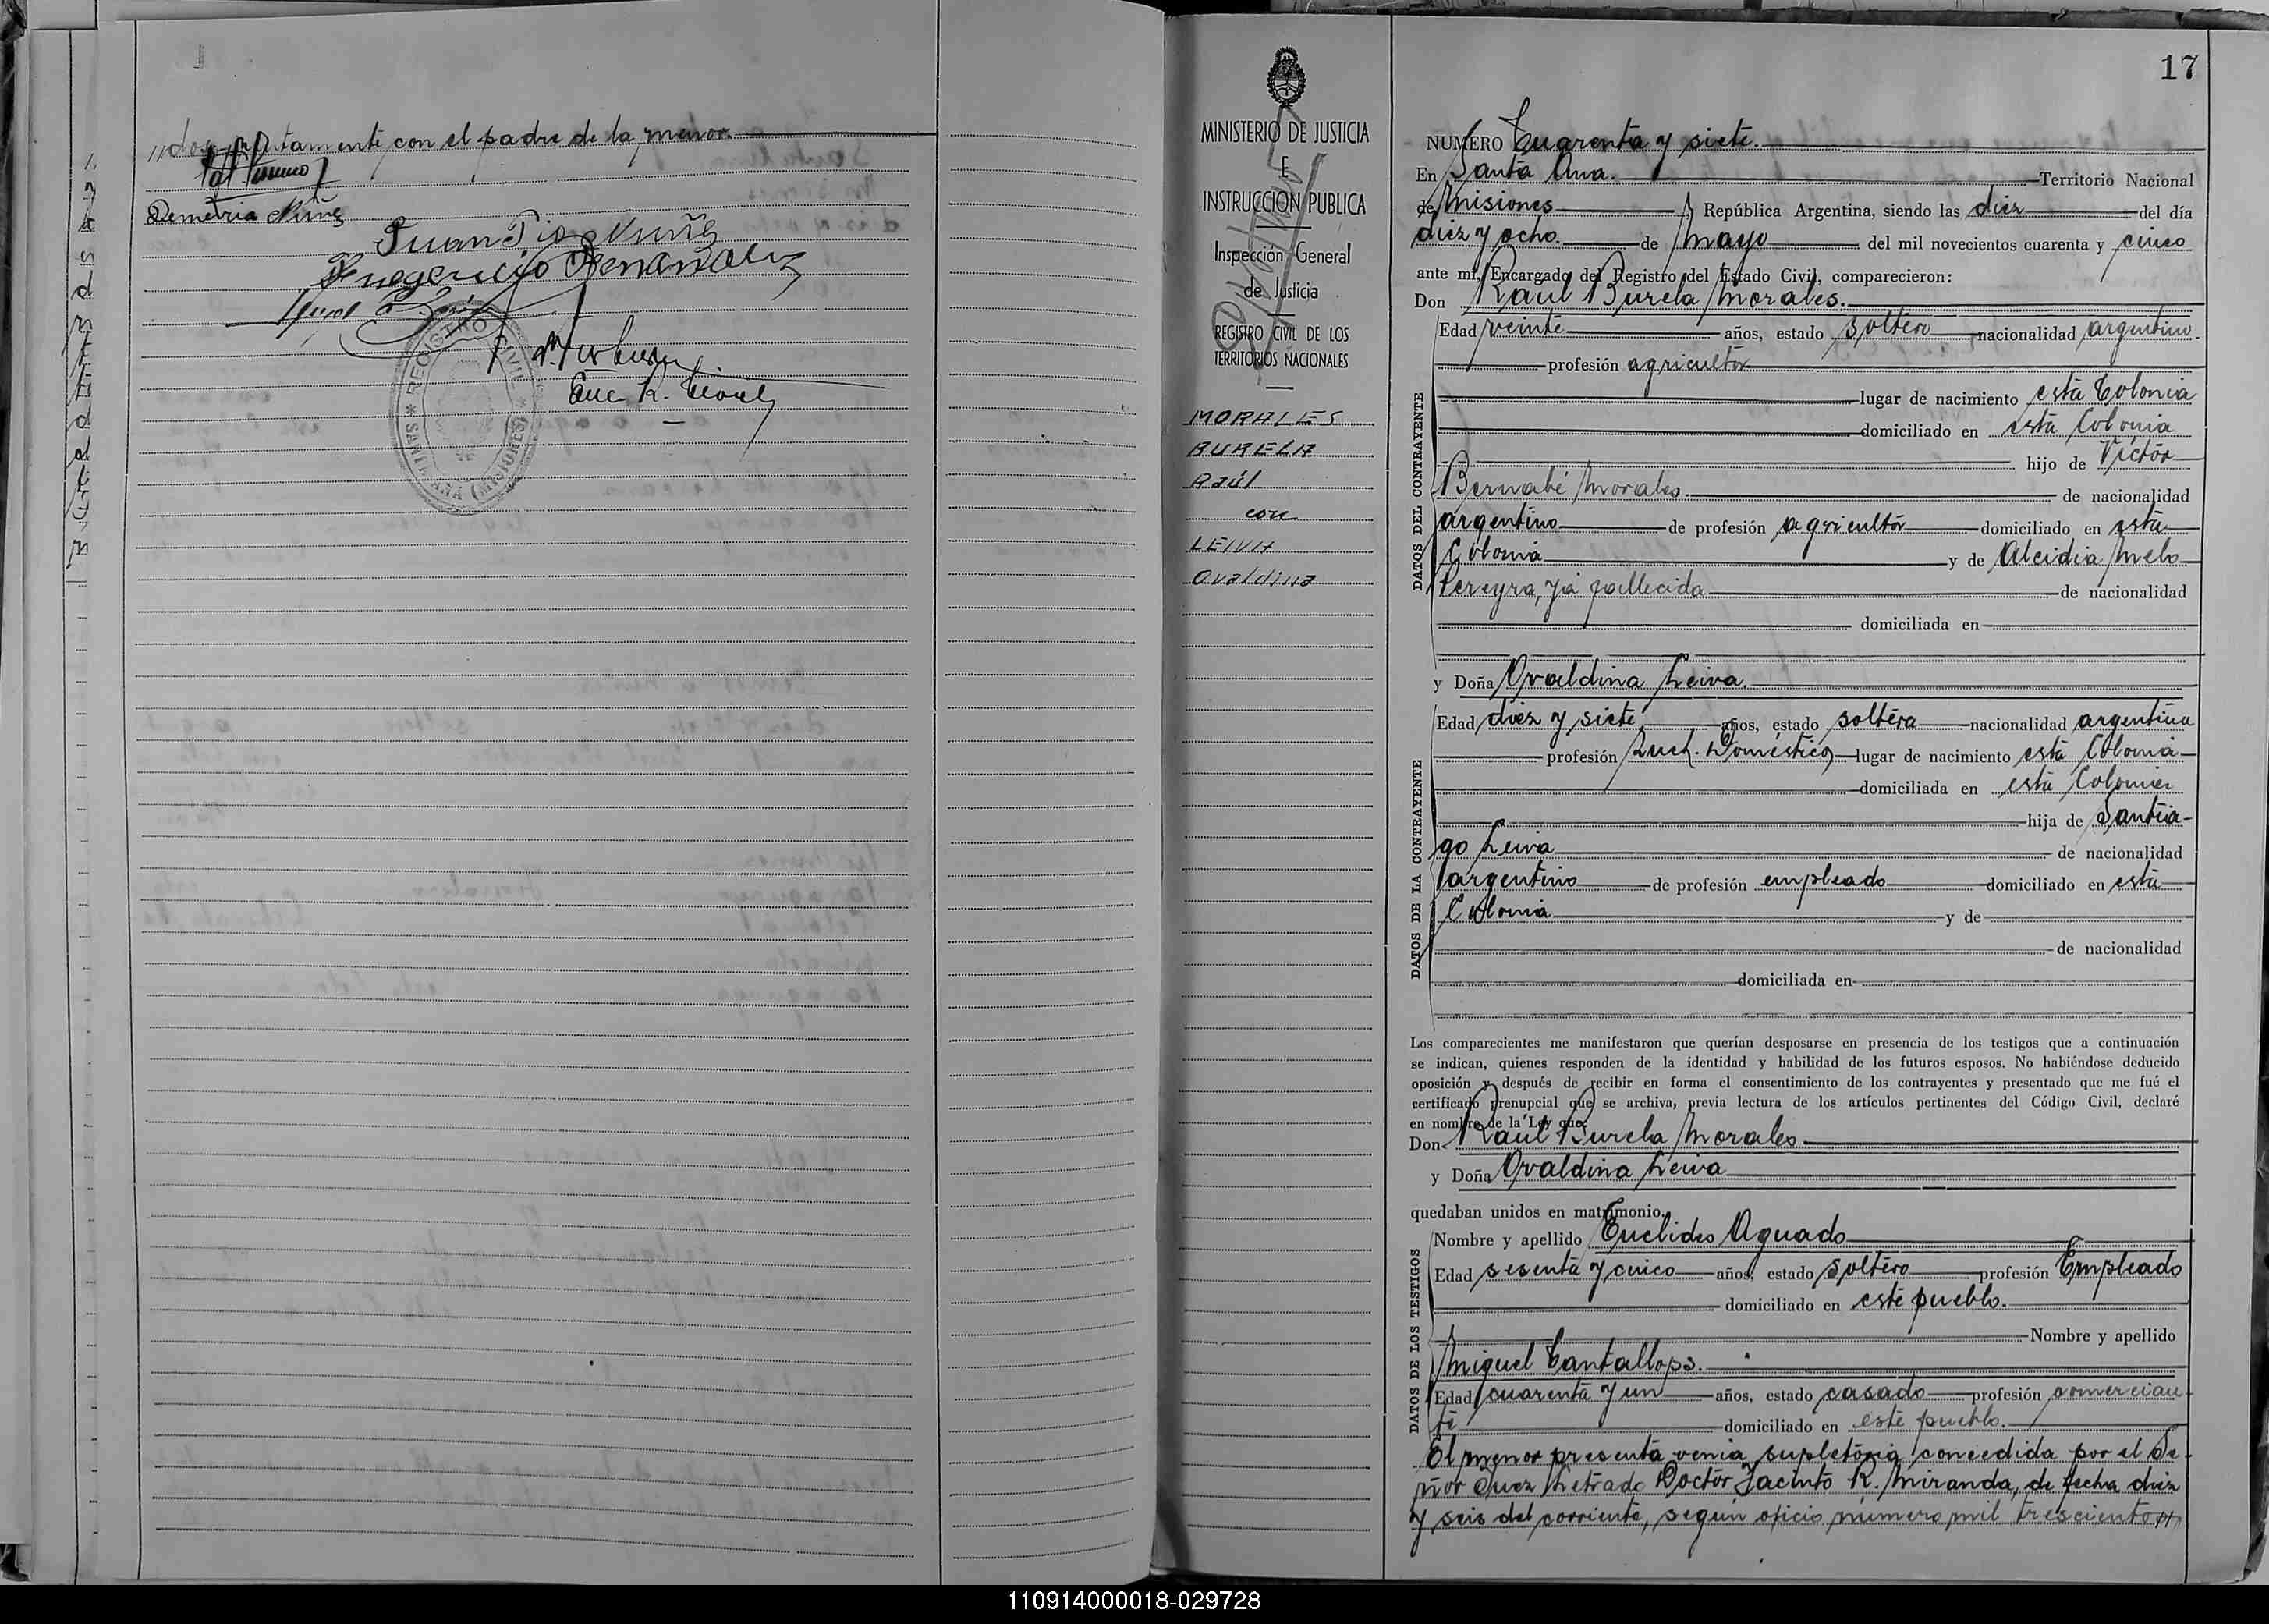 juntamente con el padre de la menor.
Demetria Núñez
Juan Pio Nuñez
Fernandez
REGISTRO CIVIL
* SANTA ANA (MISIONES) *
MINISTERIO DE JUSTICIA
E
INSTRUCCION PUBLICA
Inspección General
de Justicia
REGISTRO CIVIL DE LOS
TERRITORIOS NACIONALES
MORALES
BURELA
Raúl
con
LEIVA
Ovaldina
17
NUMERO Cuarenta y siete.
En Santa Ana. Territorio Nacional
de Misiones República Argentina, siendo las diez del día
diez y ocho. de Mayo del mil novecientos cuarenta y cinco
ante mí, Encargado del Registro del Estado Civil, comparecieron:
Don Raul Burela Morales.
DATOS DEL CONTRAYENTE
Edad veinte años, estado soltero nacionalidad argentino.
profesión agricultor
lugar de nacimiento esta Colonia
domiciliado en esta Colonia
hijo de Victor
Bernabé Morales. de nacionalidad
argentino de profesión agricultor domiciliado en esta
Colonia y de Alcidia Melo
Pereyra, ya fallecida de nacionalidad
domiciliada en
y Doña Ovaldina Leiva.
DATOS DE LA CONTRAYENTE
Edad diez y siete años, estado soltera nacionalidad argentina
profesión Queh. Domésticos lugar de nacimiento esta Colonia
domiciliada en esta Colonia
hija de Santia-
go Leiva de nacionalidad
argentino de profesión empleado domiciliado en esta
Colonia y de
de nacionalidad
domiciliada en
Los comparecientes me manifestaron que querían desposarse en presencia de los testigos que a continuación
se indican, quienes responden de la identidad y habilidad de los futuros esposos. No habiéndose deducido
oposición y después de recibir en forma el consentimiento de los contrayentes y presentado que me fué el
certificado prenupcial que se archiva, previa lectura de los artículos pertinentes del Código Civil, declaré
en nombre de la Ley que:
Don Raúl Burela Morales
y Doña Ovaldina Leiva
quedaban unidos en matrimonio.
DATOS DE LOS TESTIGOS
Nombre y apellido Euclides Aguado
Edad sesenta y cinco años, estado soltero profesión Empleado
domiciliado en este pueblo.
Nombre y apellido
Miguel Cantallops.
Edad cuarenta y un años, estado casado profesión comercian-
te domiciliado en este pueblo.
El menor presenta venia supletoria concedida por el Se-
ñor Juez Letrado Doctor Jacinto R. Miranda, de fecha diez
y seis del corriente, según oficio número mil trescientos
110914000018-029728